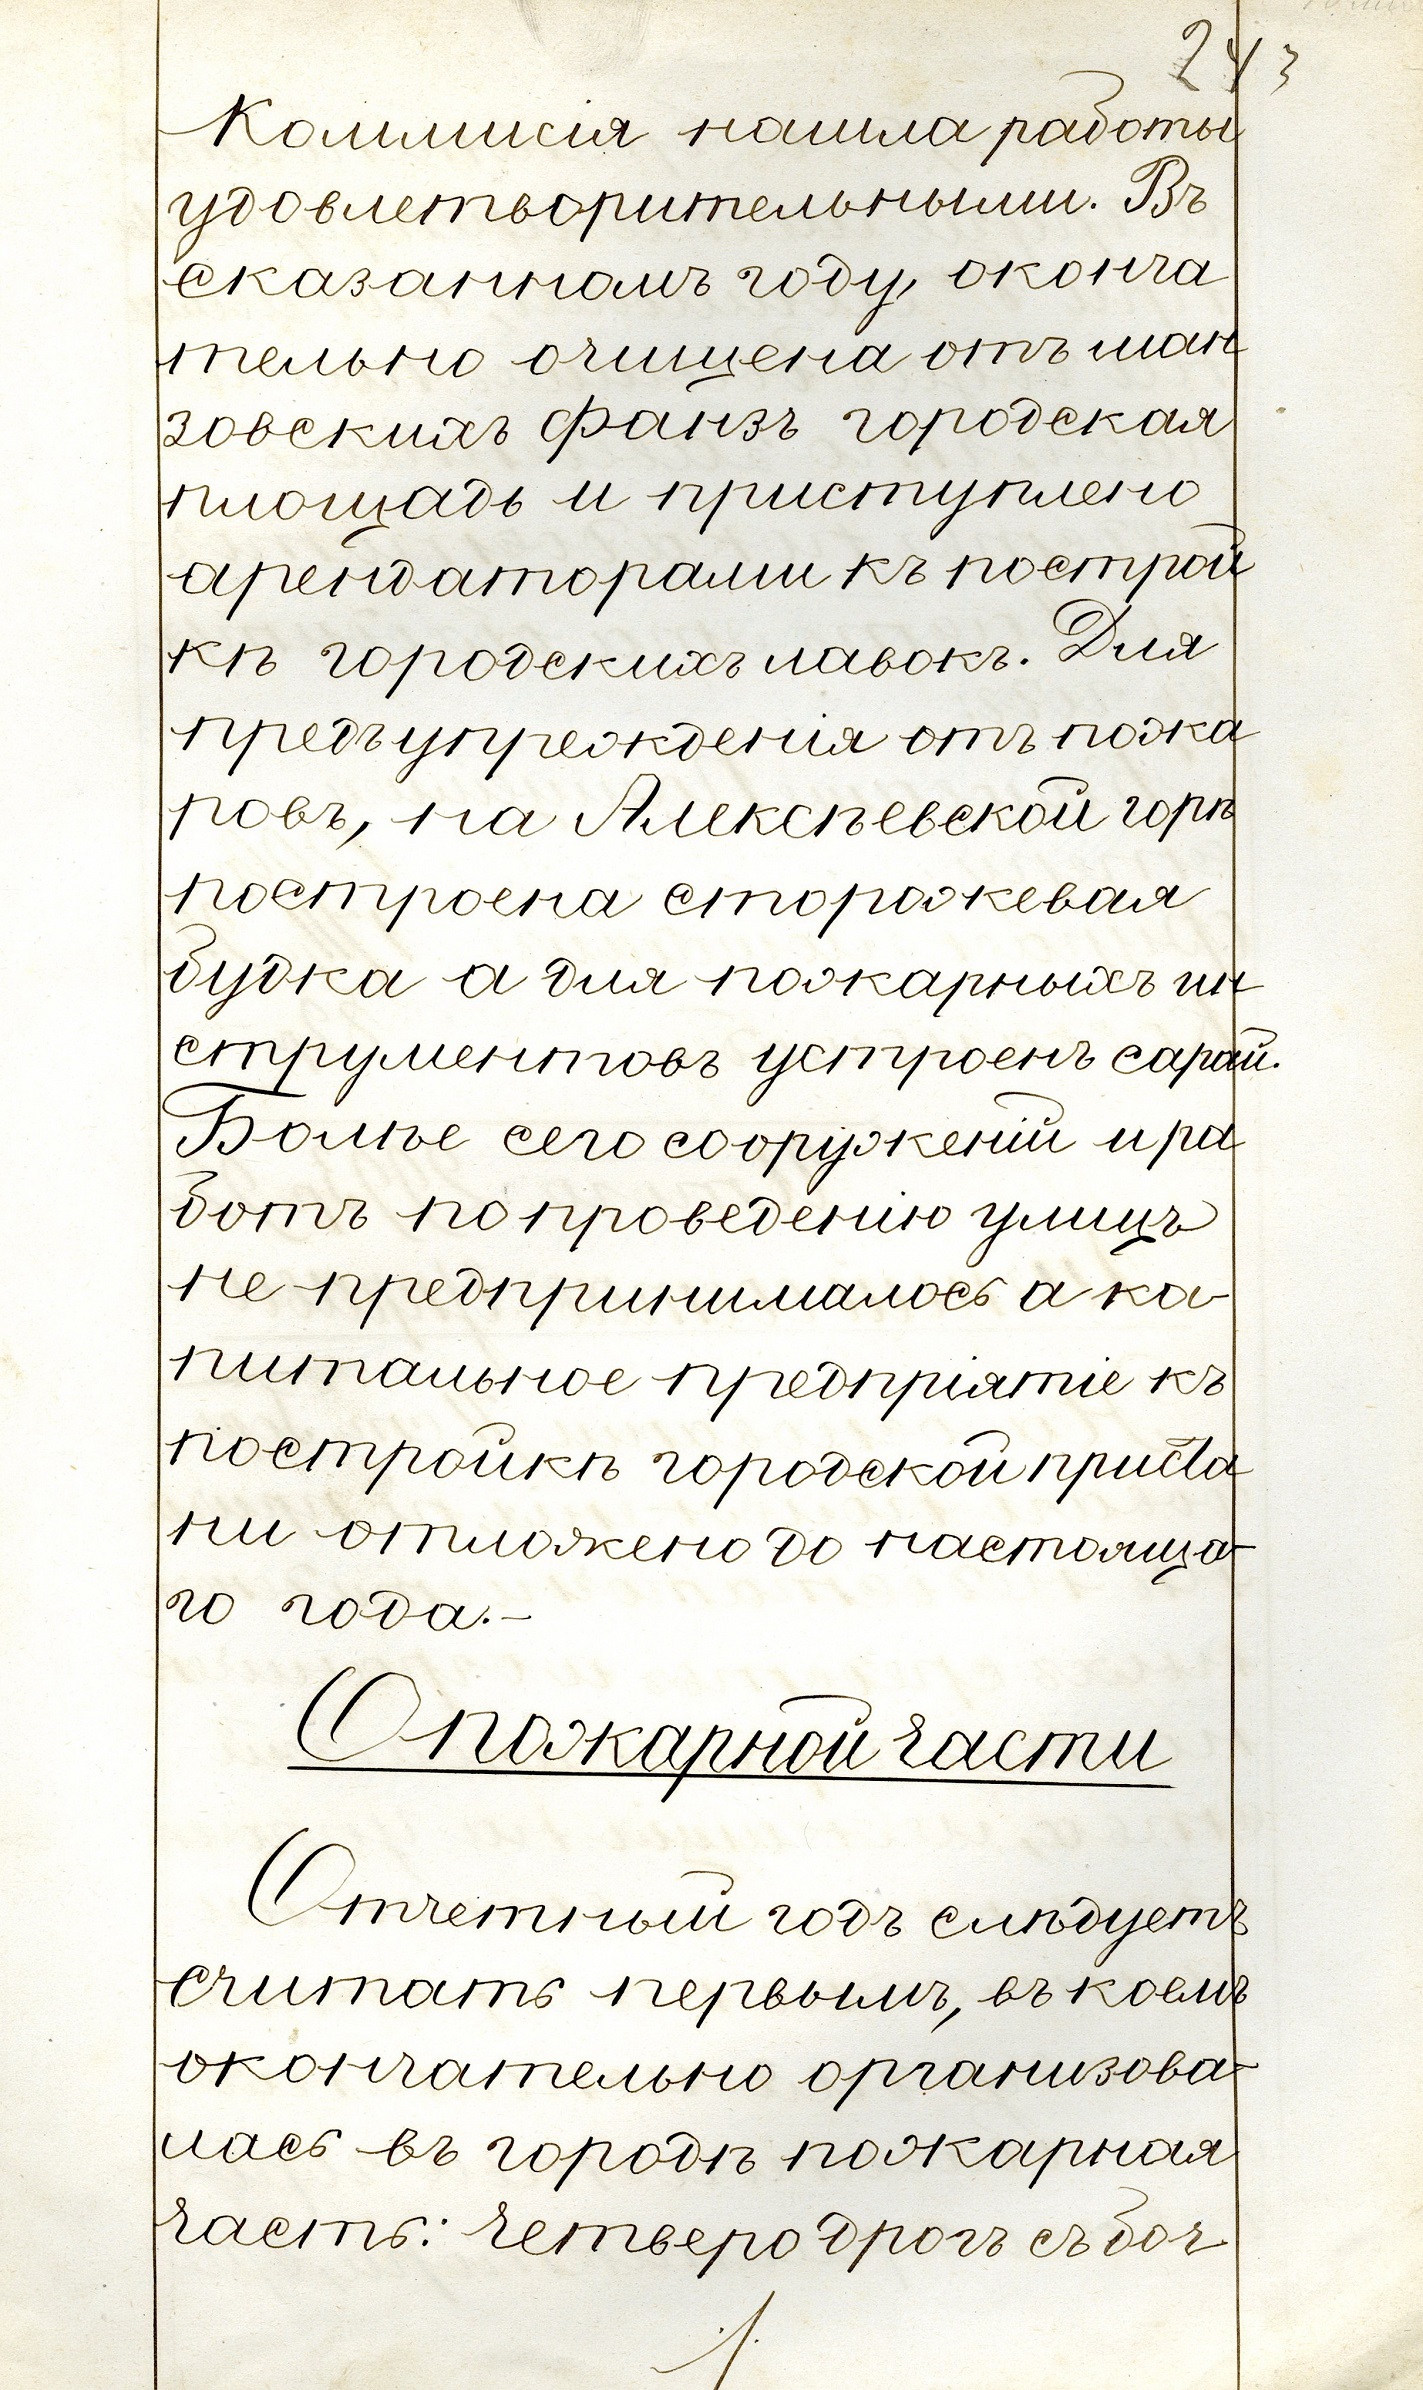 243
Коммисія нашла работы
удовлетворительными. Въ
сказанномъ году, оконча
тельно очищена отъ ман
зовскихъ фанзъ городская
площадь и приступлено
арендаторами къ построй
кѣ городскихъ лавокъ. Для
предъупрежденія отъ пожа
ровъ, на Алексѣевской горѣ
построена сторожевая
будка а для пожарныхъ ин
струментовъ устроенъ сарай.
Болѣе сего сооруженій и ра
ботъ по проведенію улицъ
не предпринималось а ка-
питальное предпріятіе къ
постройкѣ городской приста
ни отложено до настояща-
го года.-
О пожарной части
Отчетный годъ слѣдуетъ
считать первымъ, въ коемъ
окончательно организова-
лась въ городѣ пожарная
часть: четверо дрогъ съ боч